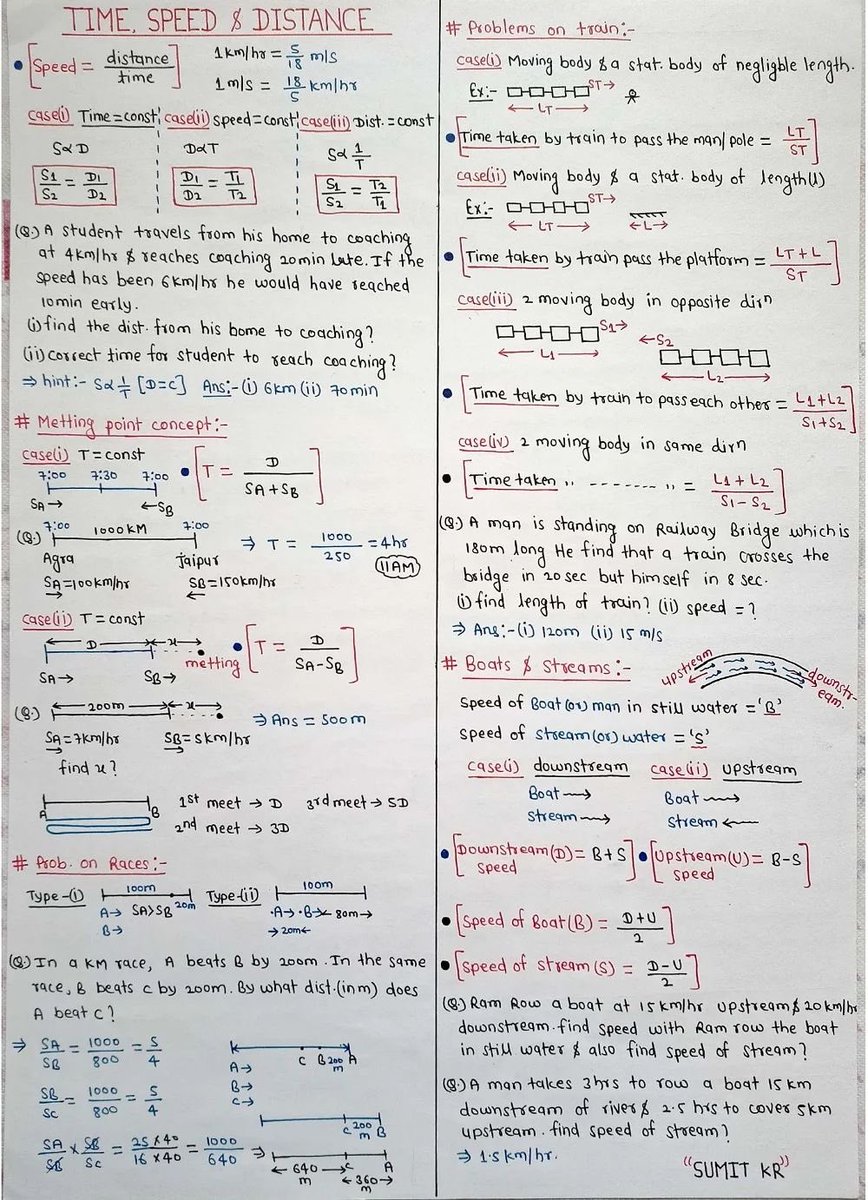 TIME, SPEED & DISTANCE
• [Speed = distance/time] 1km/hr = 5/18 m/s
1m/s = 18/5 km/hr
case(i) Time=const case(ii) speed=const case(iii) Dist.=const
S∝D D∝T S∝1/T
S1/S2 = D1/D2 D1/D2 = T1/T2 S1/S2 = T2/T1
(Q.) A student travels from his home to coaching
at 4km/hr & reaches coaching 20min late. If the
speed has been 6km/hr he would have reached
10min early.
(i) find the dist. from his home to coaching?
(ii) correct time for student to reach coaching?
⇒ hint:- S∝1/T [D=C] Ans:- (i) 6km (ii) 70min
# Metting point concept:-
case(i) T=const
7:00 7:30 7:00
SA→ ←SB
• [T = D/SA+SB]
(Q.) 7:00 1000KM 7:00
Agra Jaipur
SA=100km/hr SB=150km/hr
→ ←
⇒ T = 1000/250 = 4hr
11AM
case(ii) T=const
D x
SA→ SB→ metting
• [T = D/SA-SB]
(Q.) 200m x ⇒ Ans = 500m
SA=7km/hr SB=5km/hr
→ →
find x?
A B
1st meet → D 3rd meet → 5D
2nd meet → 3D
# Prob. on Races:-
Type-(i) 100m Type-(ii) 100m
A→ SA>SB 20m •A→ •B→ ←80m→
B→ →20m←
(Q.) In a KM race, A beats B by 200m. In the same
race, B beats C by 200m. By what dist.(in m) does
A beat C?
⇒ SA/SB = 1000/800 = 5/4
C B 200m A
A→
B→
C→
SB/SC = 1000/800 = 5/4
C 200m B
SA/SB × SB/SC = 25×40/16×40 = 1000/640 ⇒
C A
←640m→ ←360m→
# Problems on train:-
case(i) Moving body & a stat. body of negligble length.
Ex:- ST→
←LT→
• [Time taken by train to pass the man/pole = LT/ST]
case(ii) Moving body & a stat. body of length(l)
Ex:- ST→
←LT→ ←L→
• [Time taken by train pass the platform = LT+L/ST]
case(iii) 2 moving body in opposite dirn
S1→ ←S2
←L1→ ←L2→
• [Time taken by train to pass each other = L1+L2/S1+S2]
case(iv) 2 moving body in same dirn
• [Time taken ,, - - - - - - - ,, = L1+L2/S1-S2]
(Q.) A man is standing on Railway Bridge which is
180m long He find that a train crosses the
bridge in 20sec but himself in 8 sec.
(i) find length of train? (ii) speed = ?
⇒ Ans:- (i) 120m (ii) 15 m/s
# Boats & streams:-
upstream downstream.
Speed of Boat(or) man in still water = 'B'
speed of stream(or) water = 'S'
case(i) downstream case(ii) upstream
Boat→ Boat→
Stream→ stream←
• [Downstream(D) speed = B+S] • [Upstream(U) speed = B-S]
• [Speed of Boat(B) = D+U/2]
• [Speed of stream(S) = D-U/2]
(Q.) Ram Row a boat at 15km/hr upstream & 20km/hr
downstream. find speed with Ram row the boat
in still water & also find speed of stream?
(Q.) A man takes 3hrs to row a boat 15km
downstream of river & 2.5 hrs to cover 5km
upstream. find speed of stream?
⇒ 1.5km/hr.
"SUMIT KR"